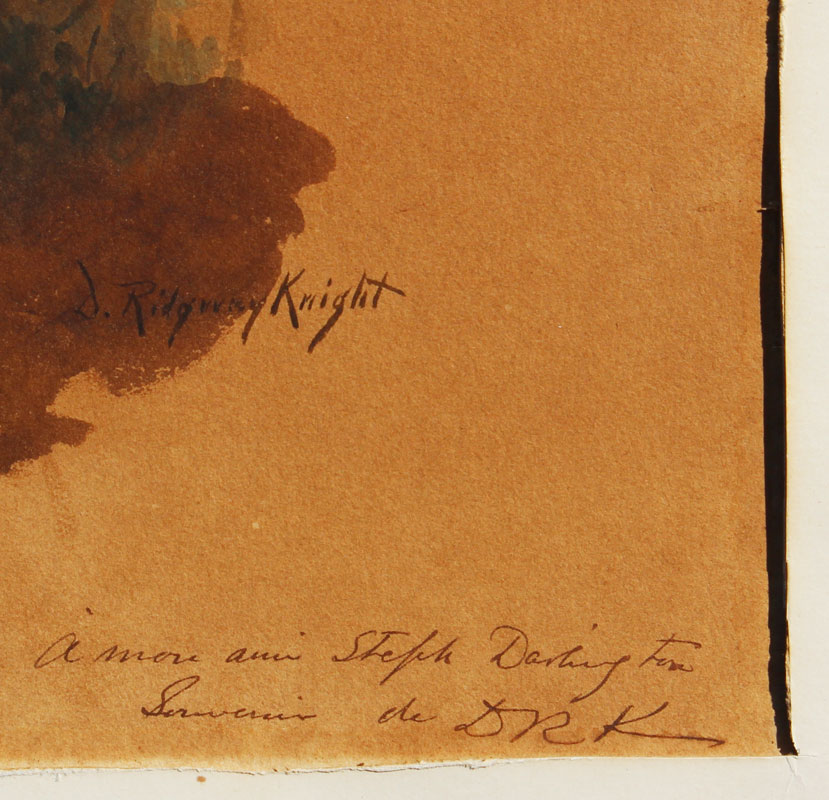 D. Ridgway Knight
À mon ami Steph Darlington
Souvenir de DRK